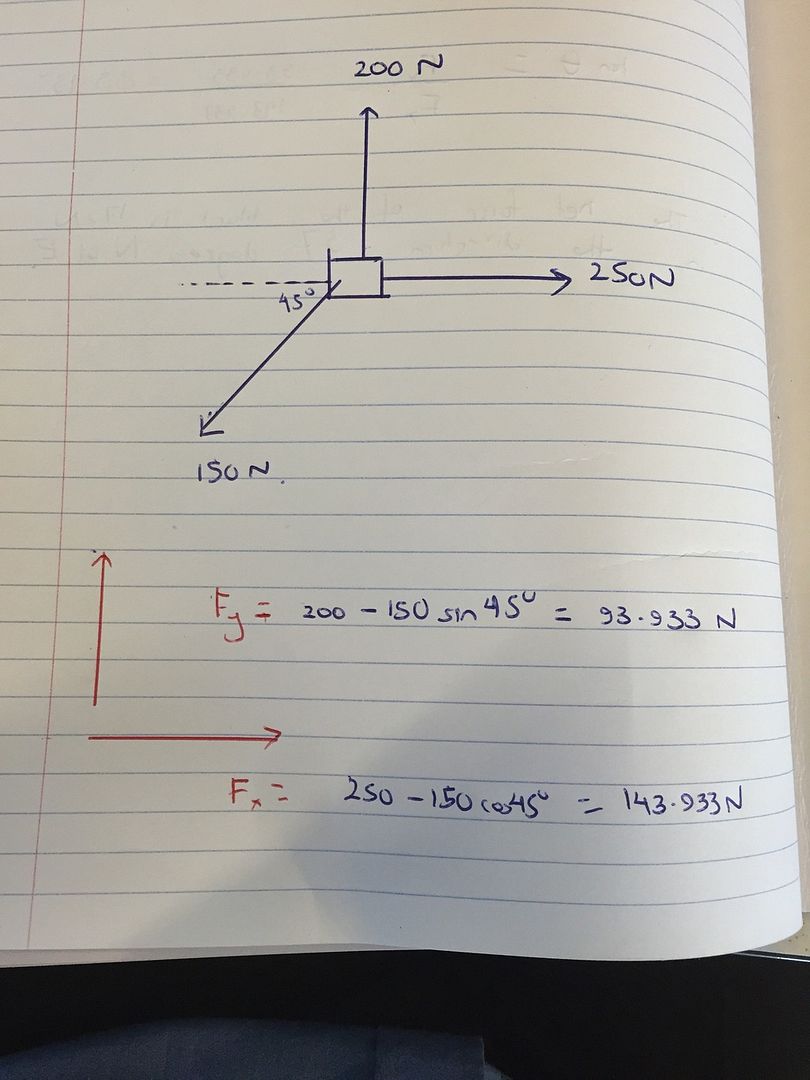 200 N
250N
45°
150 N.
Fy = 200 - 150 sin 45° = 93.933 N
Fx = 250 - 150 cos45° = 143.933N